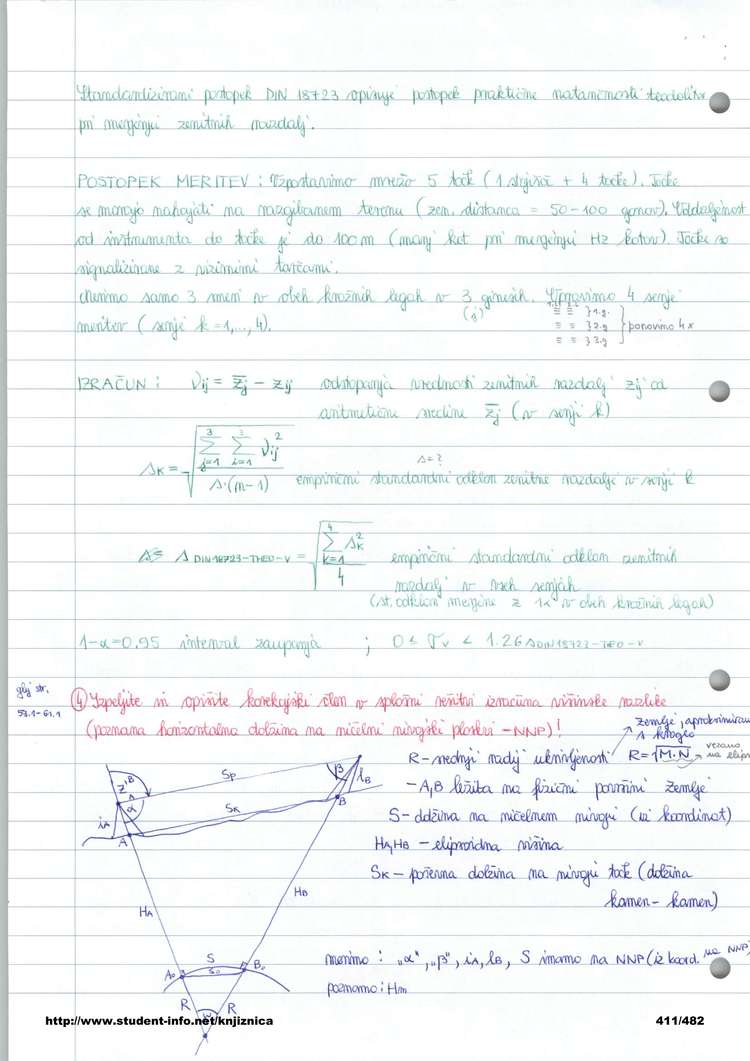 Standardizirani postopek DIN 18723 opisuje postopek praktične natančnosti teodolitov
pri merjenju zenitnih razdalj.
POSTOPEK MERITEV : Vzpostavimo mrežo 5 točk (1 stojišče + 4 točke). Točke
se morajo nahajati na razgibanem terenu (zen. distanca = 50-100 gonov). Oddaljenost
od instrumenta do točke je do 100m (manj kot pri merjenju Hz kotov). Točke so
signalizirane z vizirnimi tarčami.
Merimo samo 3 smeri v obeh krožnih legah v 3 girusih. Opravimo 4 serije
(j)
meritev (serije k=1,...,4).
= = } 1.g.
= = } 2.g
= = } 3.g
ponovimo 4x
IZRAČUN : νij = z̄j - zij odstopanja vrednosti zenitnih razdalj zij od
aritmetične sredine z̄j (v seriji k)
sK = √(∑ j=1..3 ∑ i=1..3 νij² / s·(n-1)) empirični standardni odklon zenitne razdalje v seriji k
s=?
s DIN18723-THEO-V = √(∑ k=1..4 sK² / 4) empirični standardni odklon zenitnih
razdalj v vseh serijah
(st. odklon merjene z 1x v obeh krožnih legah)
1-α=0.95 interval zaupanja ; 0 ≤ σv < 1.26 s DIN18723-TEO-V
glej str.
53.1-61.1
4 Izpeljite in opišite korekcijski člen v splošni rešitvi izračuna višinske razlike
(poznana horizontalna dolžina na ničelni nivojski ploskvi - NNP)!
zemlje, aproksimirane
s kroglo
R - srednji radij ukrivljenosti R = √M·N
- A,B ležita na fizični površini Zemlje
S - dolžina na ničelnem nivoju (iz koordinat)
HA,HB - elipsoidna višina
SK - poševna dolžina na nivoju točk (dolžina
kamen - kamen)
z'A B
α
iA
A
Sp
SK
β
lB
B
HA
HB
S
S0
A0
B0
R
R
merimo : "α", "β", iA, lB, S imamo na NNP (iz koord. na NNP)
poznamo : Hm
http://www.student-info.net/knjiznica
411/482